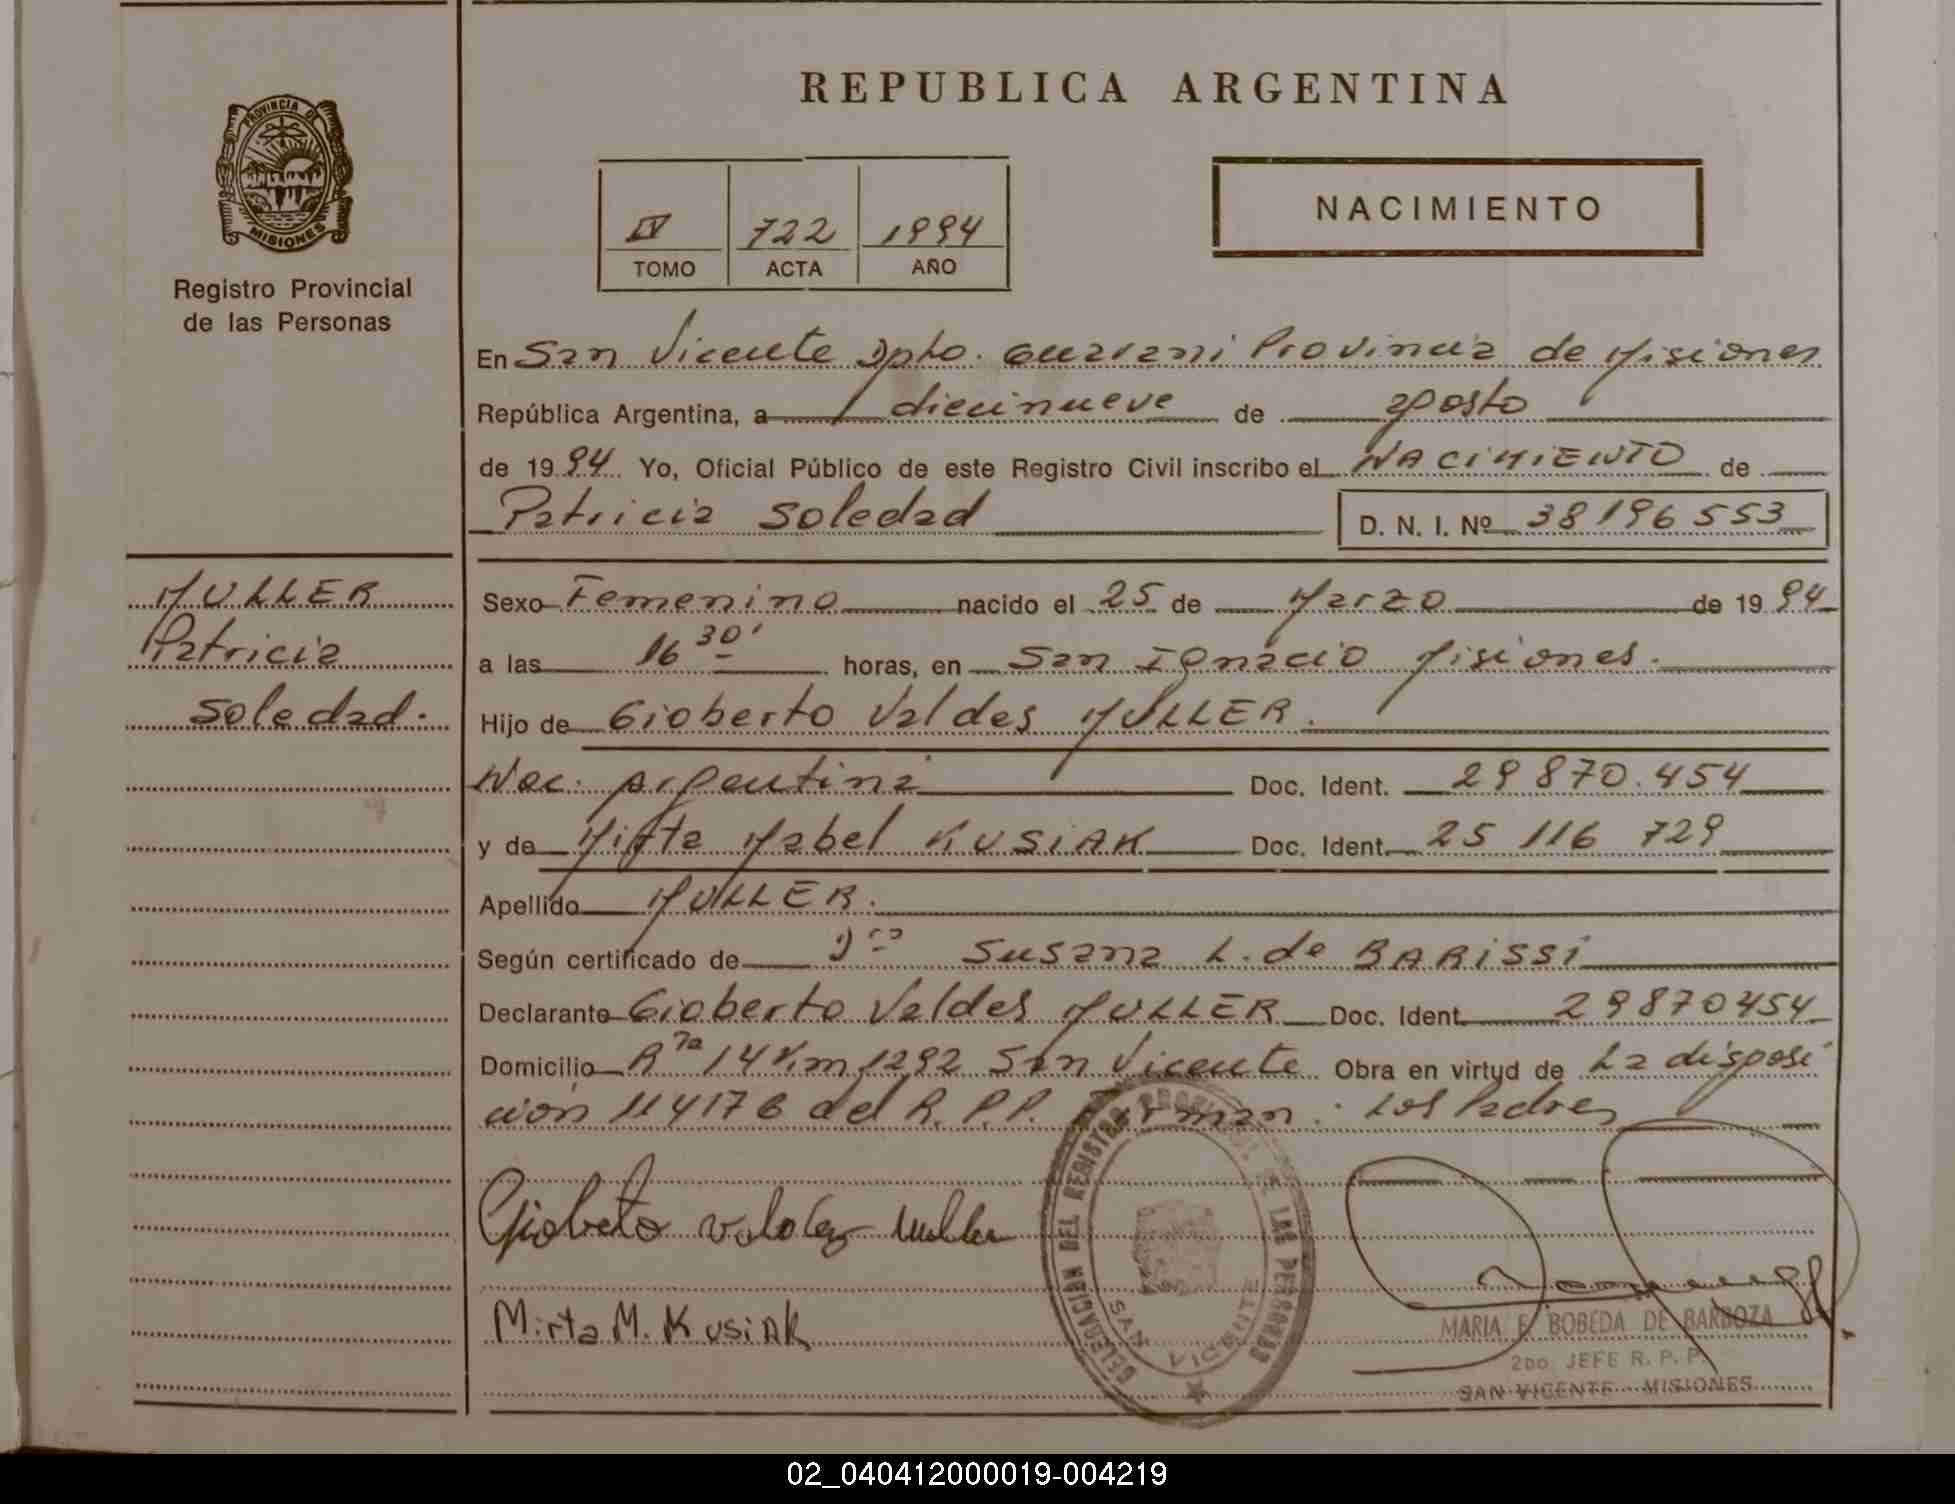 REPUBLICA ARGENTINA
PROVINCIA DE
MISIONES
Registro Provincial
de las Personas
IV 722 1994
TOMO ACTA AÑO
NACIMIENTO
En San Vicente Dpto. Guarani Provincia de Misiones
República Argentina, a diecinueve de agosto
de 1994 Yo, Oficial Público de este Registro Civil inscribo el NACIMIENTO de
Patricia Soledad D. N. I. Nº 38196553
MULLER
Patricia
Soledad.
Sexo Femenino nacido el 25 de Marzo de 1994
a las 16 30' horas, en San Ignacio Misiones.
Hijo de Gioberto Valdes MULLER.
Nac. Argentina Doc. Ident. 29870.454
y de Mirta Mabel KUSIAK Doc. Ident. 25 116 729
Apellido MULLER.
Según certificado de Dra Susana L. de BARISSI
Declarante Gioberto Valdes MULLER Doc. Ident. 29870454
Domicilio Rta 14 Km 1292 San Vicente Obra en virtud de La disposi
ción 114176 del R.P.P. Firman: Los Padres
Gioberto Valdez Muller
Mirta M. KUSIAK
DELEGACION DEL REGISTRO PROVINCIAL DE LAS PERSONAS
SAN VICENTE
MARIA E. BOBEDA DE BARBOZA
2DO. JEFE R. P. P.
SAN VICENTE - MISIONES
02_040412000019-004219